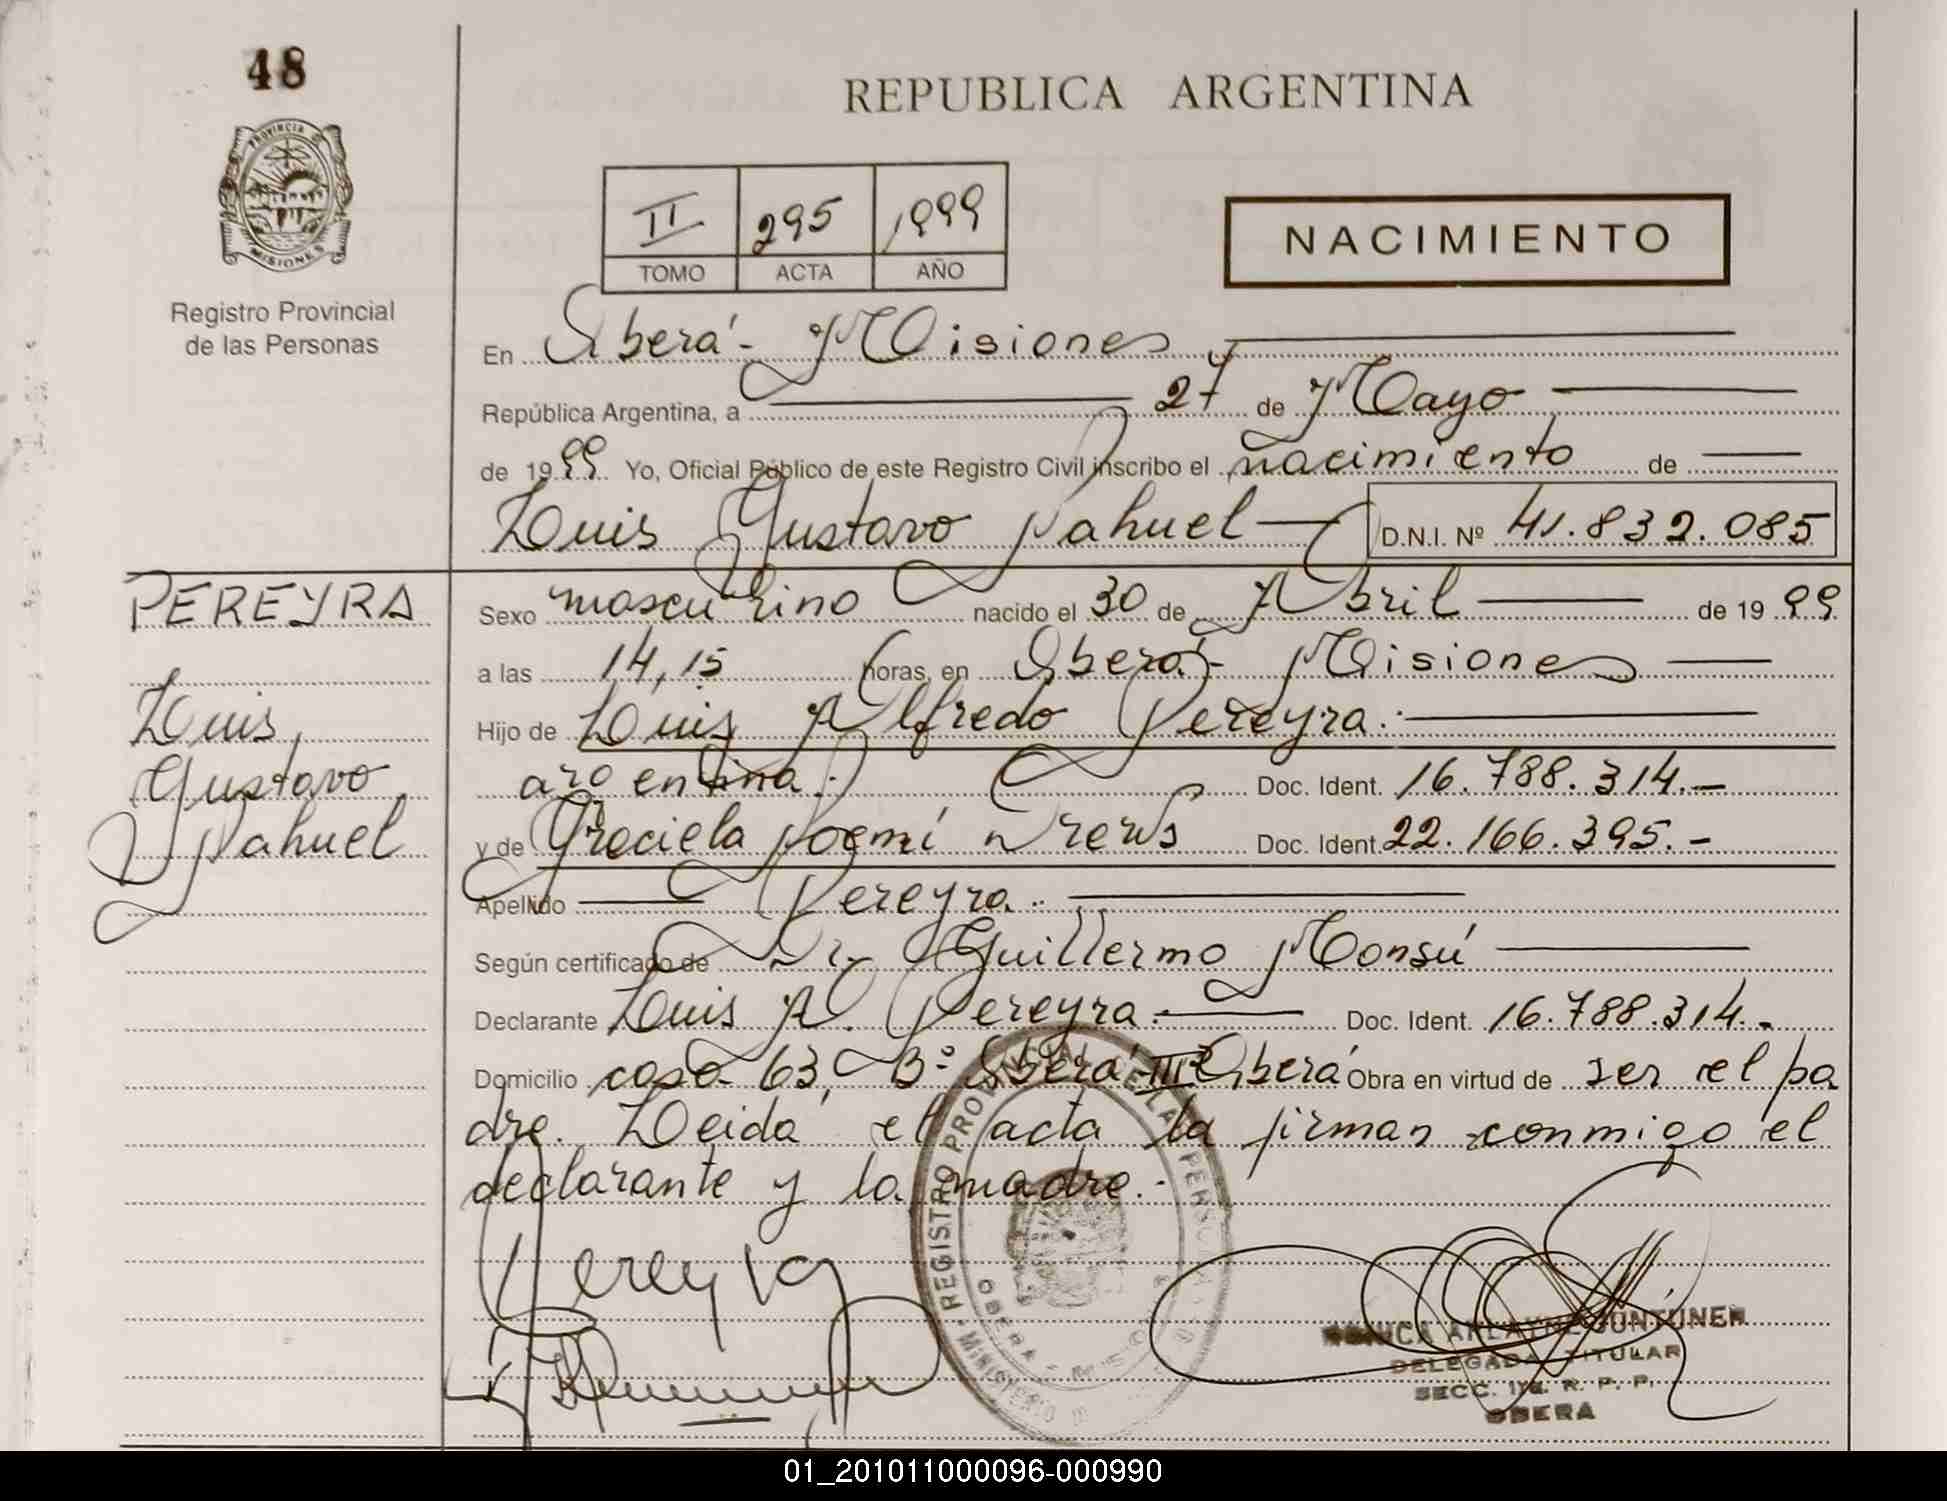 48
REPUBLICA ARGENTINA
PROVINCIA DE
MISIONES
II 295 1999
TOMO ACTA AÑO
NACIMIENTO
Registro Provincial
de las Personas
En Oberá - Misiones
República Argentina, a 27 de Mayo
de 1999 Yo, Oficial Público de este Registro Civil inscribo el nacimiento de
Luis Gustavo Nahuel D.N.I. Nº 41.832.085
PEREYRA
Luis
Gustavo
Nahuel
Sexo masculino nacido el 30 de Abril de 1999
a las 14,15 horas, en Oberá - Misiones
Hijo de Luis Alfredo Pereyra.
argentina. Doc. Ident. 16.788.314.-
y de Graciela Noemí Drews Doc. Ident. 22.166.395.-
Apellido Pereyra.
Según certificado de Dr. Guillermo Monsú
Declarante Luis A. Pereyra. Doc. Ident. 16.788.314.-
Domicilio casa 63, Bº Oberá III Oberá Obra en virtud de ser el pa
dre. Leida el acta la firman conmigo el
declarante y la madre.-
Pereyra
REGISTRO PROVINCIAL DE LAS PERSONAS
OBERA
MINISTERIO
DELEGADA TITULAR
SECC. R. P. P.
OBERA
01_201011000096-000990